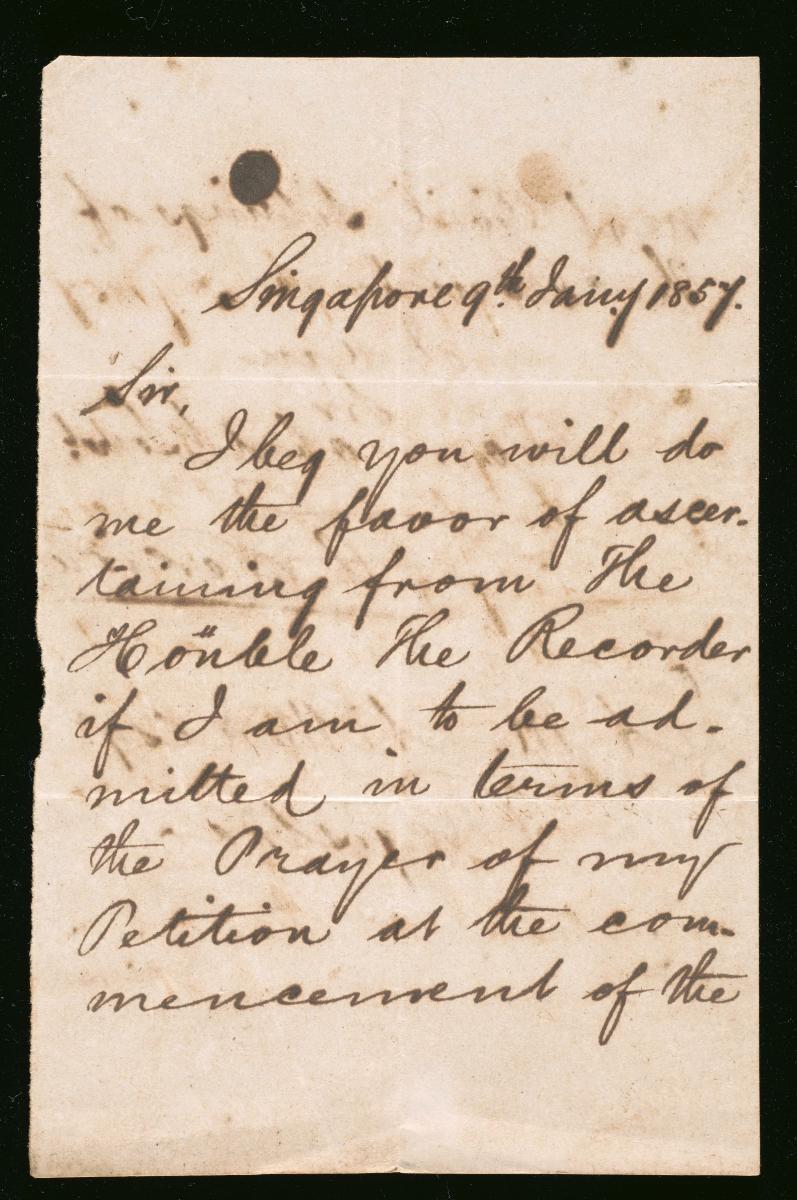 Singapore 9th. Jany 1857.
Sir,
I beg you will do
me the favor of ascer-
taining from The
Honble The Recorder
if I am to be ad-
mitted in terms of
the Prayer of my
Petition at the com-
mencement of the